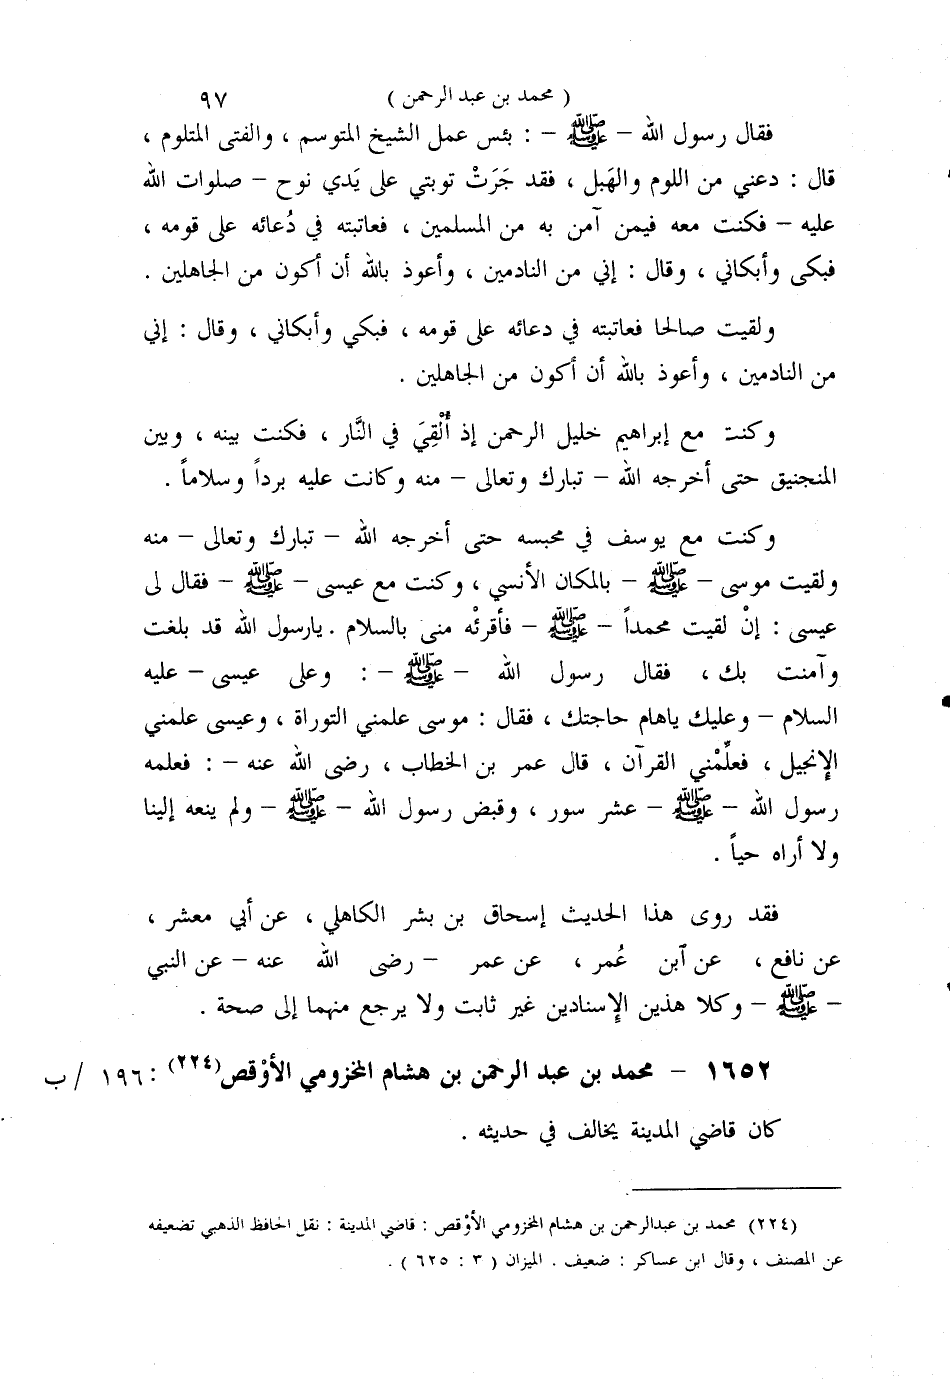 ( محمد بن عبد الرحمن ) ٩٧
فقال رسول الله – ﷺ – : بئس عمل الشيخ المتوسم ، والفتى المتلوم ،
قال : دعني من اللوم والهَبل ، فقد جَرَتْ توبتي على يَدي نوح – صلوات الله
عليه – فكنت معه فيمن آمن به من المسلمين ، فعاتبته في دُعائه على قومه ،
فبكى وأبكاني ، وقال : إني من النادمين ، وأعوذ بالله أن أكون من الجاهلين .
ولقيت صالحا فعاتبته في دعائه على قومه ، فبكي وأبكاني ، وقال : إني
من النادمين ، وأعوذ بالله أن أكون من الجاهلين .
وكنت مع إبراهيم خليل الرحمن إذ أُلْقِيَ في النَّار ، فكنت بينه ، وبين
المنجنيق حتى أخرجه الله – تبارك وتعالى – منه وكانت عليه برداً وسلاماً .
وكنت مع يوسف في محبسه حتى أخرجه الله – تبارك وتعالى – منه
ولقيت موسى – ﷺ – بالمكان الأنسي ، وكنت مع عيسى – ﷺ – فقال لى
عيسى : إنْ لقيت محمداً – ﷺ – فأقرئْه منى بالسلام . يارسول الله قد بلغت
وآمنت بك ، فقال رسول الله – ﷺ – : وعلى عيسى – عليه
السلام – وعليك ياهام حاجتك ، فقال : موسى علمني التوراة ، وعيسى علمني
الإنجيل ، فعلِّمْني القرآن ، قال عمر بن الخطاب ، رضى الله عنه – : فعلمه
رسول الله – ﷺ – عشر سور ، وقبض رسول الله – ﷺ – ولم ينعه إلينا
ولا أراه حياً .
فقد روى هذا الحديث إسحاق بن بشر الكاهلي ، عن أبي معشر ،
عن نافع ، عن آبن عُمر ، عن عمر – رضى الله عنه – عن النبي
– ﷺ – وكلا هذين الإسنادين غير ثابت ولا يرجع منهما إلى صحة .
١٦٥٢ – محمد بن عبد الرحمن بن هشام المخزومي الأوْقص(٢٢٤) : ١٩٦ / ب
كان قاضي المدينة يخالف في حديثه .
(٢٢٤) محمد بن عبدالرحمن بن هشام المخزومي الأوْقص : قاضي المدينة : نقل الحافظ الذهبي تضعيفه
عن المصنف ، وقال ابن عساكر : ضعيف . الميزان ( ٣ : ٦٢٥ ) .